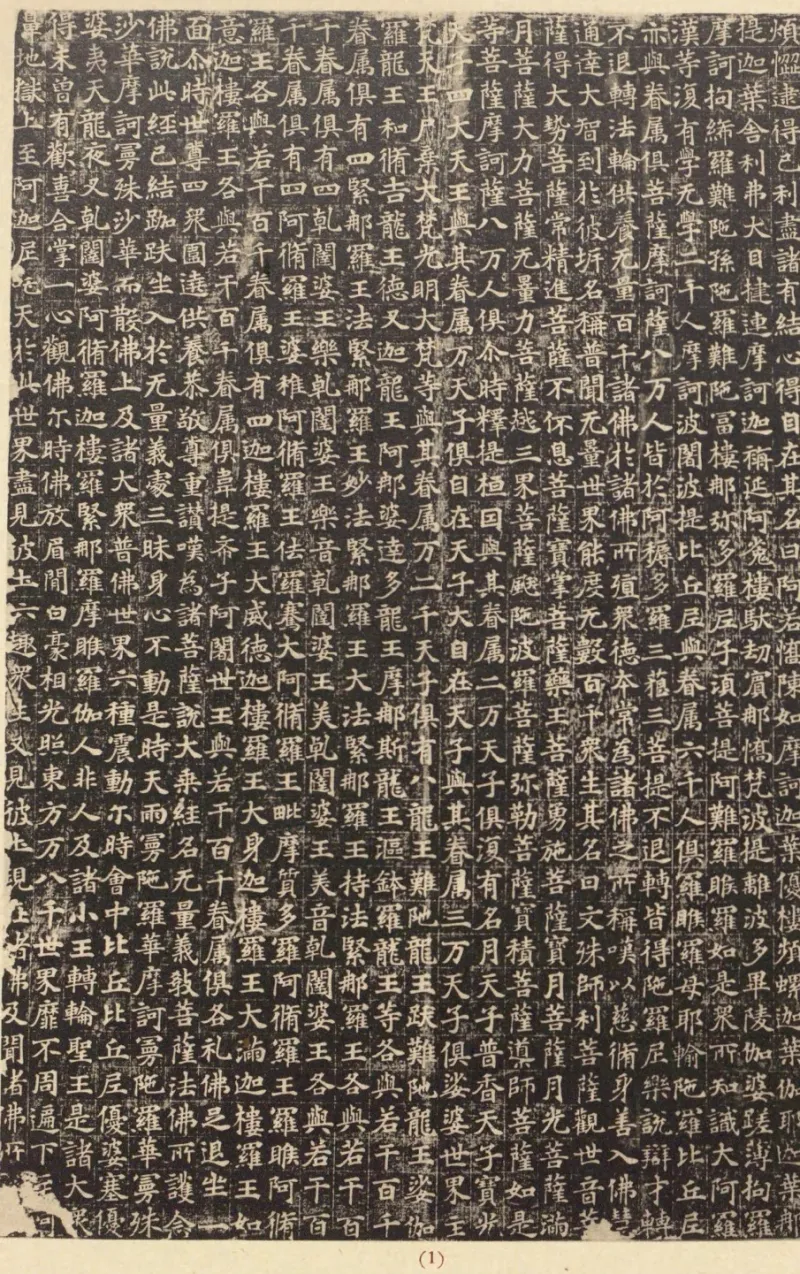 煩惱逮得己利盡諸有結心得自在其名曰阿若憍陳如摩訶迦葉優樓頻螺迦葉伽耶迦葉那
提迦葉舍利弗大目揵連摩訶迦旃延阿㝹樓馱劫賓那憍梵波提離波多畢陵伽婆蹉薄拘羅
摩訶拘絺羅難陁孫陁羅難陁冨樓那弥多羅尼子湏菩提阿難羅睺羅如是衆所知識大阿羅
漢等復有學无學二千人摩訶波闍波提比丘尼與眷属六千人俱羅睺羅母耶輸陁羅比丘尼
亦與眷属俱菩薩摩訶薩八万人皆於阿耨多羅三藐三菩提不退轉皆得陁羅尼樂說辯才轉
不退轉法輪供養无量百千諸佛於諸佛所殖衆德本常為諸佛之所稱嘆以慈脩身善入佛慧
通達大智到於彼岸名稱普聞无量世界能度无數百千衆生其名曰文殊師利菩薩觀世音菩
薩得大勢菩薩常精進菩薩不休息菩薩寶掌菩薩藥王菩薩勇施菩薩寶月菩薩月光菩薩滿
月菩薩大力菩薩无量力菩薩越三界菩薩颰陁波羅菩薩弥勒菩薩寶積菩薩導師菩薩如是
等菩薩摩訶薩八万人俱尒時釋提桓因與其眷属二万天子俱復有名月天子普香天子寶光
天子四大天王與其眷属万天子俱自在天子大自在天子與其眷属三万天子俱娑婆世界主
梵天王尸棄大梵光明大梵等與其眷属万二千天子俱有八龍王難陁龍王跋難陁龍王娑伽
羅龍王和脩吉龍王德叉迦龍王阿那婆達多龍王摩那斯龍王漚鉢羅龍王等各與若干百千
眷属俱有四緊那羅王法緊那羅王妙法緊那羅王大法緊那羅王持法緊那羅王各與若干百
千眷属俱有四乹闥婆王樂乹闥婆王樂音乹闥婆王美乹闥婆王美音乹闥婆王各與若干百
千眷属俱有四阿脩羅王婆稚阿脩羅王佉羅騫大阿脩羅王毗摩質多羅阿脩羅王羅睺阿脩
羅王各與若干百千眷属俱有四迦樓羅王大威德迦樓羅王大身迦樓羅王大滿迦樓羅王如
意迦樓羅王各與若干百千眷属俱韋提希子阿闍世王與若干百千眷属俱各礼佛足退坐一
面尒時世尊四衆圍遶供養恭敬尊重讃嘆為諸菩薩說大乘經名无量義教菩薩法佛所護念
佛說此經已結跏趺坐入於无量義處三昧身心不動是時天雨曼陁羅華摩訶曼陁羅華曼殊
沙華摩訶曼殊沙華而散佛上及諸大衆普佛世界六種震動尒時會中比丘比丘尼優婆塞優
婆夷天龍夜叉乹闥婆阿脩羅迦樓羅緊那羅摩睺羅伽人非人及諸小王轉輪聖王是諸大衆
得未曾有歡喜合掌一心觀佛尒時佛放眉間白豪相光照東方万八千世界靡不周遍下至阿
鼻地獄上至阿迦尼吒天於此世界盡見彼土六趣衆生又見彼土現在諸佛及聞諸佛所
(1)